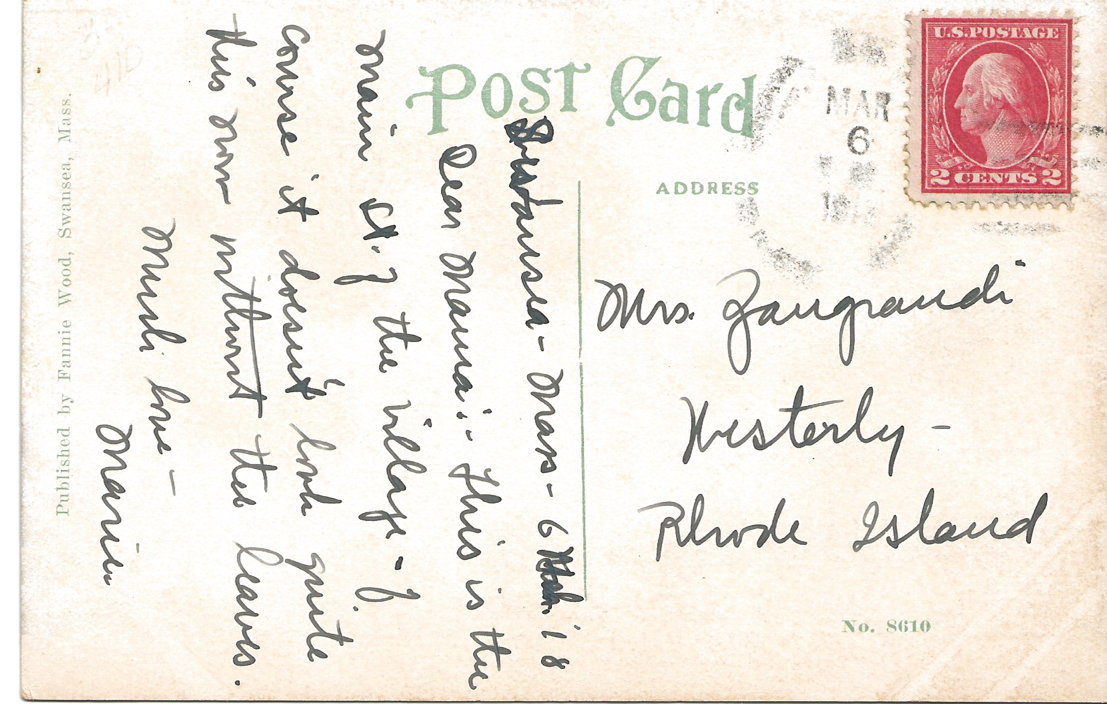 POST CARD
ADDRESS
U.S. POSTAGE
2 CENTS 2
MAR
6
Swansea - Mass - 6 Mch. '18
Dear Mama: - This is the
main st. of the village - of
course it doesn't look quite
this now without the leaves.
Much love -
Mrs. Zangrandi
Westerly -
Rhode Island
No. 8610
Published by Fannie Wood, Swansea, Mass.